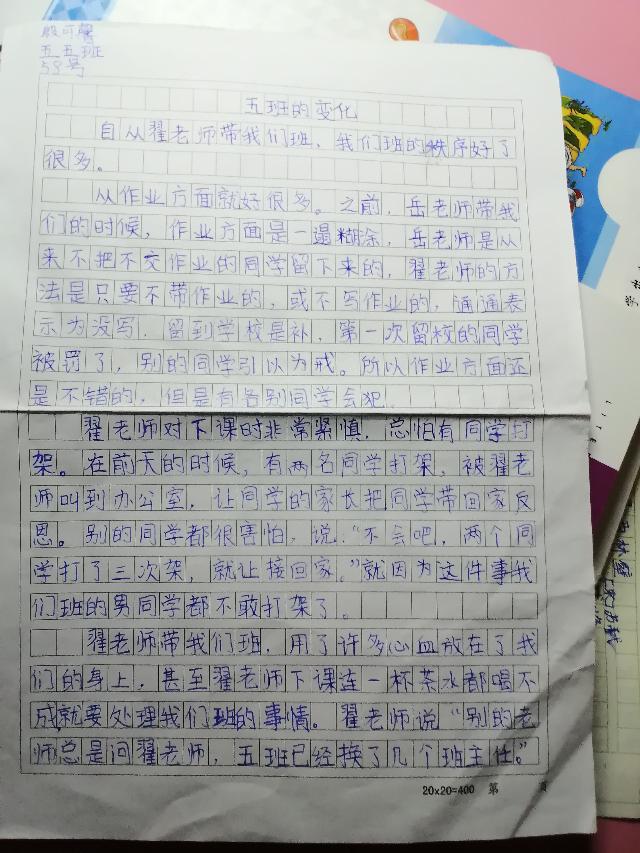 殷可馨
五五班
59号
五班的变化
自从翟老师带我们班,我们班的秩序好了
很多。
从作业方面就好很多。之前,岳老师带我
们的时候,作业方面是一遢糊涂,岳老师是从
来不把不交作业的同学留下来的,翟老师的方
法是只要不带作业的,或不写作业的,通通表
示为没写.留到学校是补,第一次留校的同学
被罚了,别的同学引以为戒。所以作业方面还
是不错的,但是有各别同学会犯.
翟老师对下课时非常紧慎,总怕有同学打
架。在前天的时候,有两名同学打架,被翟老
师叫到办公室,让同学的家长把同学带回家反
恩。别的同学都很害怕,说:“不会吧,两个同
学打了三次架,就让接回家。”就因为这件事我
们班的男同学都不敢打架了。
翟老师带我们班,用了许多心血放在了我
们的身上,甚至翟老师下课连一杯茶水都喝不
成就要处理我们班的事情。翟老师说“别的老
师总是问翟老师,五班已经换了几个班主任。”
20x20=400 第 页